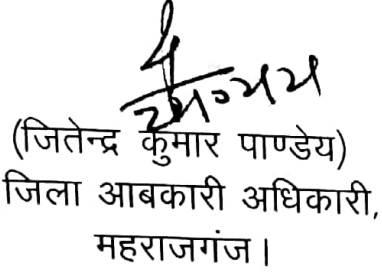 (जितेन्द्र कुमार पाण्डेय)
जिला आबकारी अधिकारी,
महराजगंज।